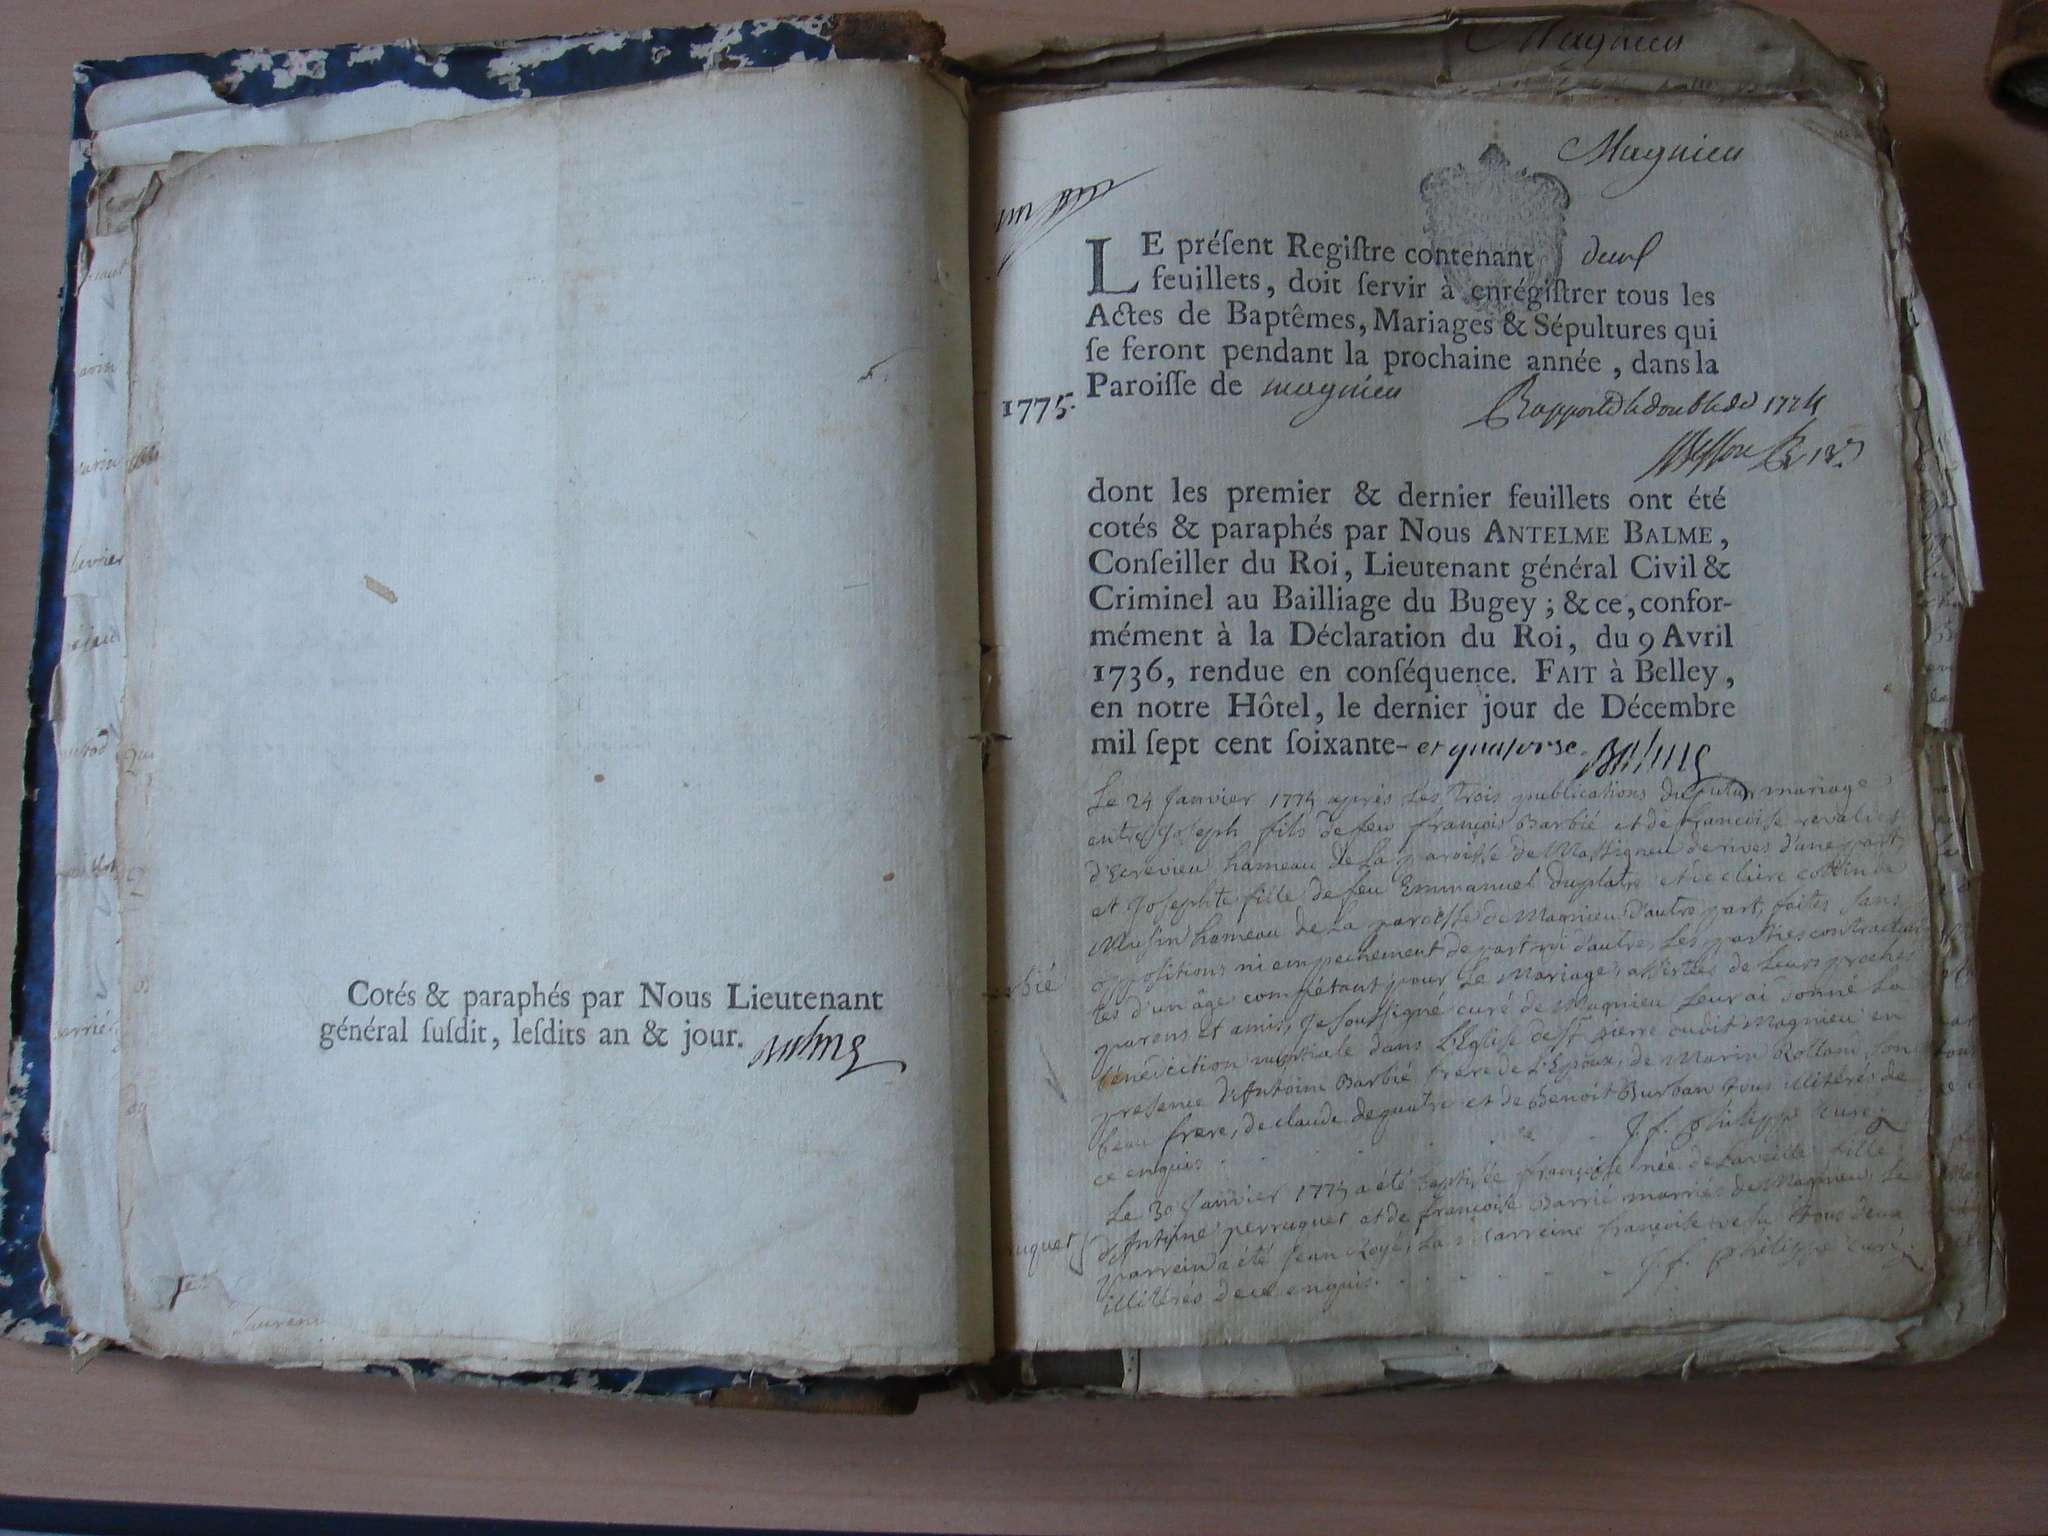 Cotés & paraphés par Nous Lieutenant
général ſuſdit, leſdits an & jour.
Magnieu
Magnieu
LE préſent Regiſtre contenant deux
feuillets, doit ſervir à enrégiſtrer tous les
Actes de Baptêmes, Mariages & Sépultures qui
ſe feront pendant la prochaine année, dans la
Paroiſſe de magnieu
1775.
Rapporté le double de 1774
dont les premier & dernier feuillets ont été
cotés & paraphés par Nous ANTELME BALME,
Conſeiller du Roi, Lieutenant général Civil &
Criminel au Bailliage du Bugey ; & ce, confor-
mément à la Déclaration du Roi, du 9 Avril
1736, rendue en conſéquence. FAIT à Belley,
en notre Hôtel, le dernier jour de Décembre
mil ſept cent ſoixante- et quatorze. Balme
Le 24 Janvier 1775 après les trois publications du futur mariage
entre Joseph fils de feu françois Barbié et de françoise
d'Ecrevieu hameau de la paroisse de Massigneu de rives d'une part,
et Josephte fille de feu Emmanuel Duplatre et de claire cottin de
Musin hameau de la paroisse de Magnieu d'autre part, faites sans
oppositions ni empechement de part ni d'autre, les parties contractan
tes d'un âge compétant pour le Mariage, assistées de leurs proches
parens et amis, Je soussigné curé de Magnieu leur ai donné la
bénédiction nuptiale dans l'Eglise de St pierre dudit Magnieu en
presence d'Antoine Barbié frere de l'Epoux, de Marin Rolland son
beau frere, de claude et de Benoit Burban tous illiterés de
ce enquis. J. f. philippe curé.
Le 30 Janvier 1775 a été baptisée françoise née de la veille fille
d'Antoine perruquet et de françoise Barrié mariés de Magnieu. Le
parrein a été Jean Royé, la marreine françoise tous deux
illiterés de ce enquis. J. f. philippe curé.